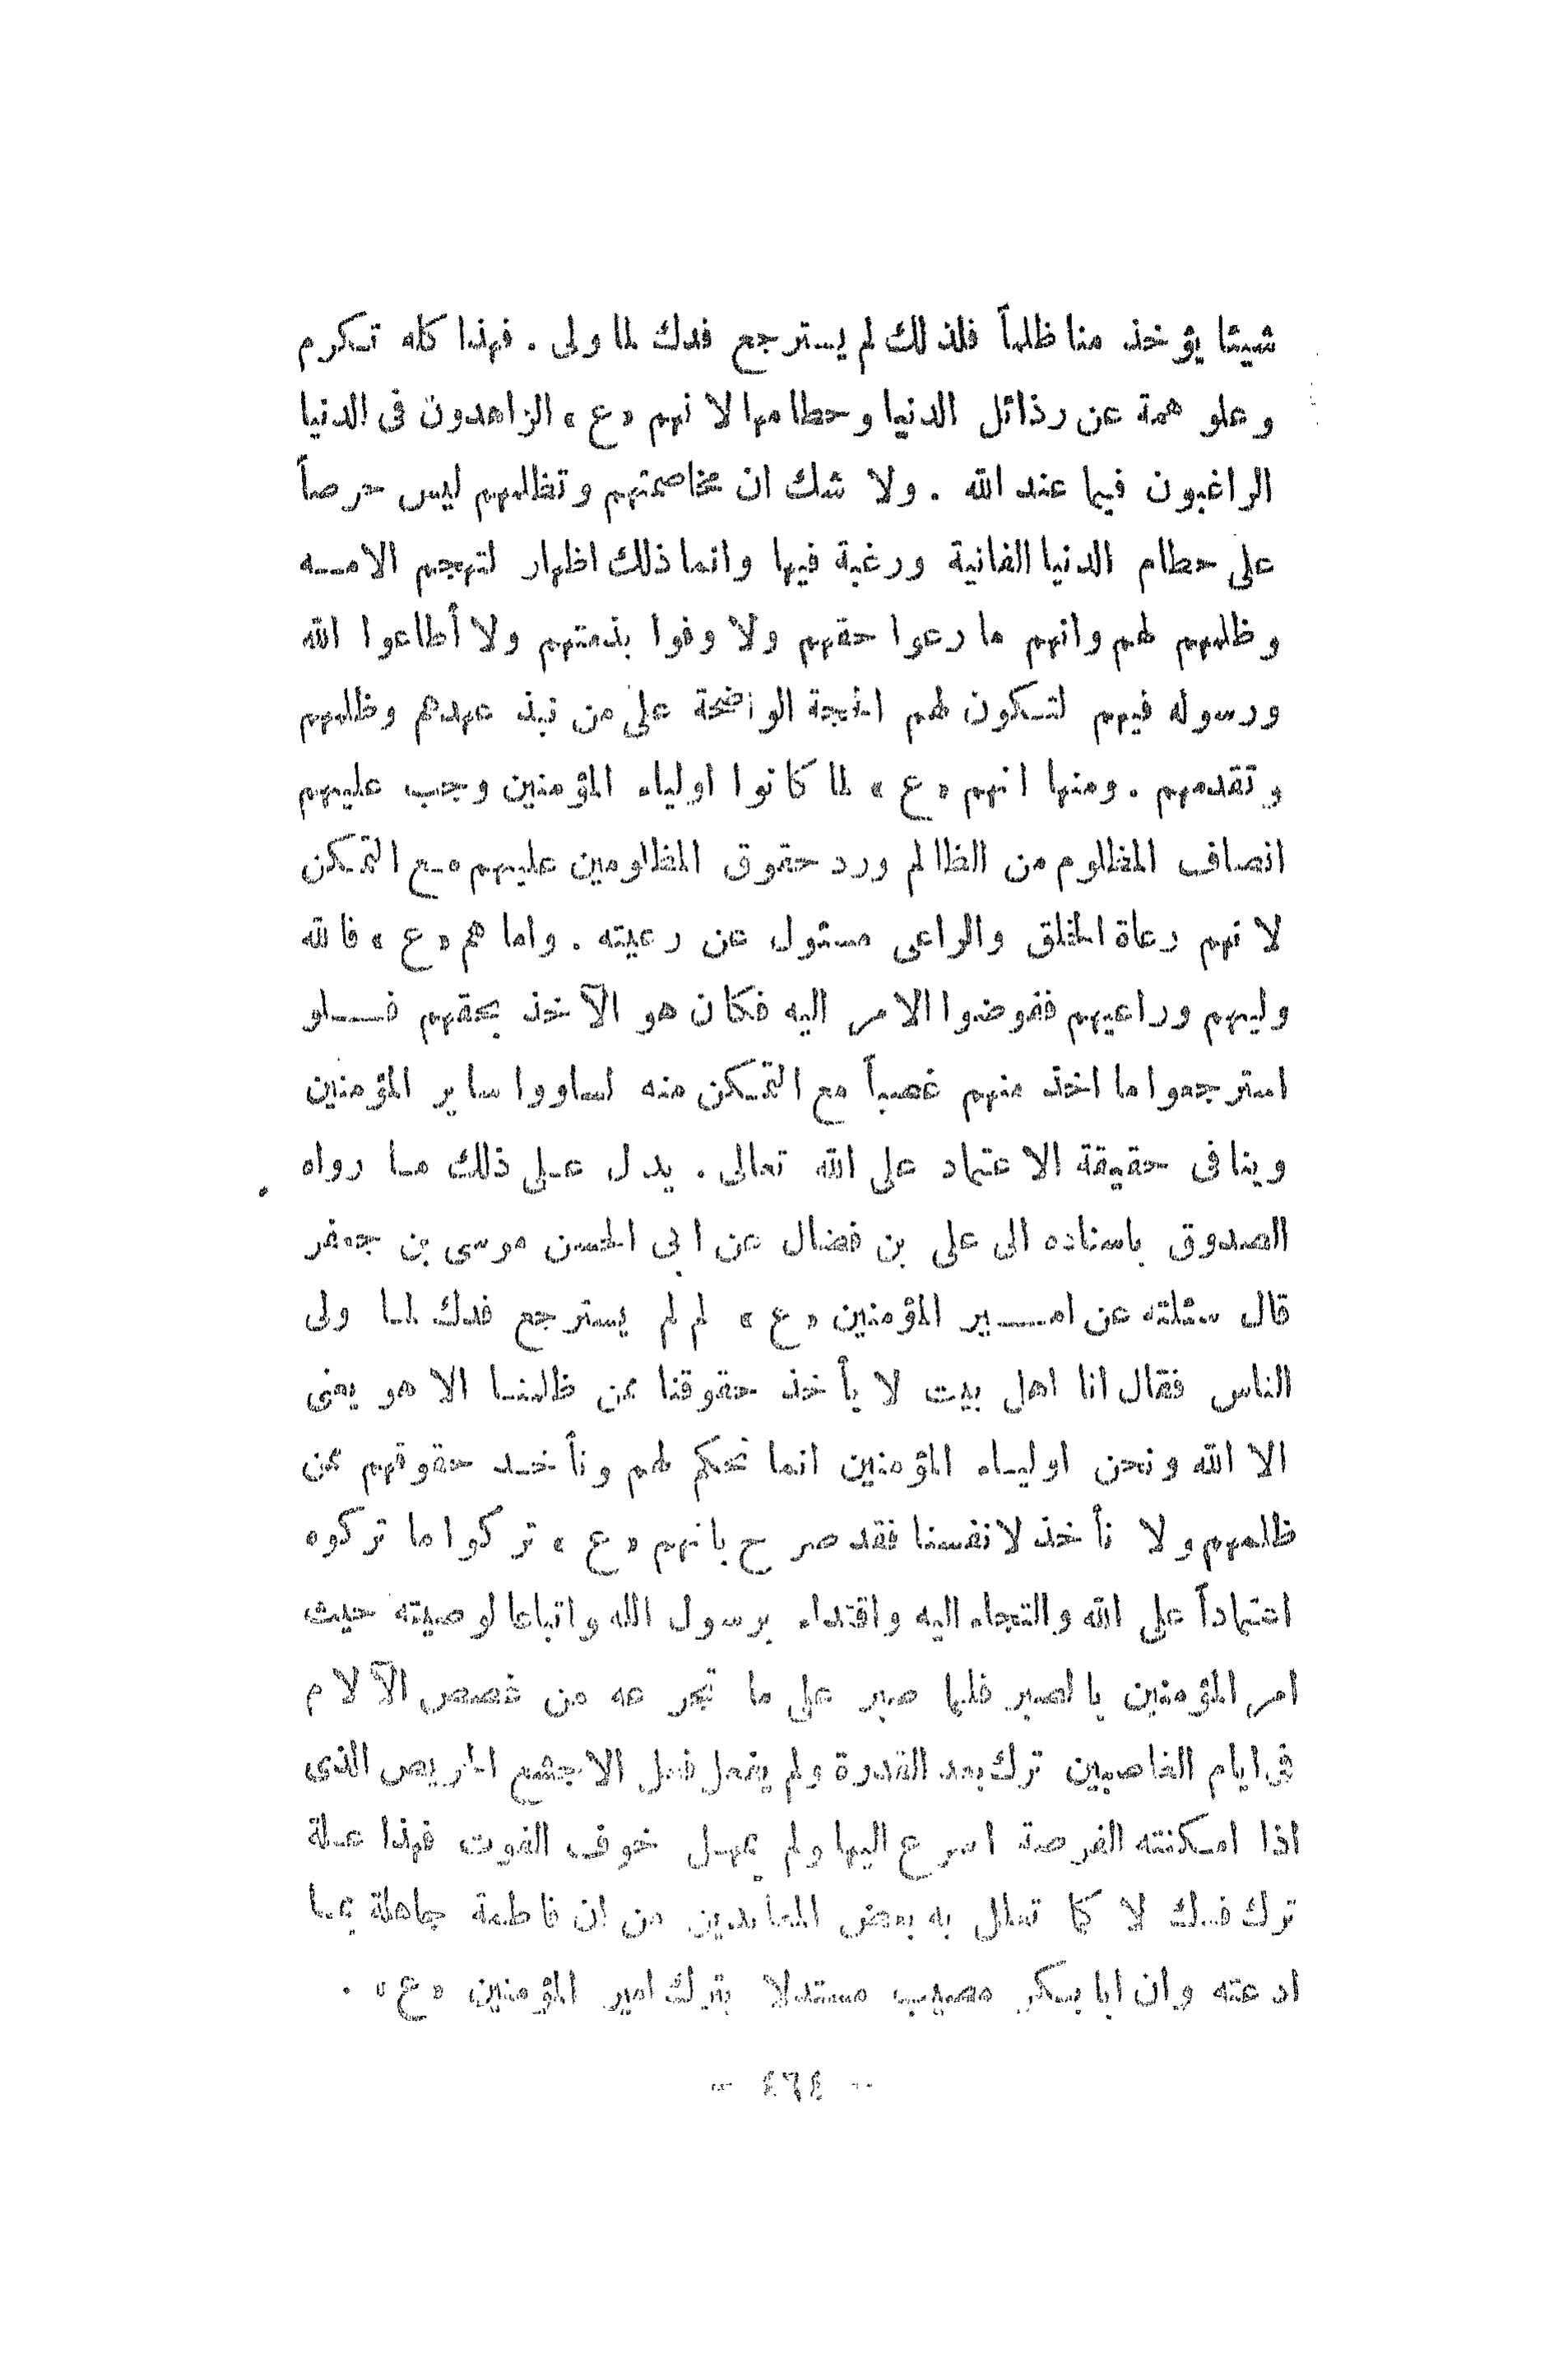 شيئا يؤخذ منا ظلماً فلذلك لم يسترجع فدك لما ولى . فهذا كله تكرم
وعلو همة عن رذائل الدنيا وحطامها لانهم «ع» الزاهدون فى الدنيا
الراغبون فيما عند الله . ولا شك ان مخاصمتهم وتظلمهم ليس حرصاً
على حطام الدنيا الفانية ورغبة فيها وانما ذلك اظهار لتهجم الامــه
وظلمهم لهم وانهم ما رعوا حقهم ولا وفوا بذمتهم ولا أطاعوا الله
ورسوله فيهم لتكون لهم الحجة الواضحة على من نبذ عهدهم وظلمهم
وتقدمهم . ومنها انهم «ع» لما كانوا اولياء المؤمنين وجب عليهم
انصاف المظلوم من الظالم ورد حقوق المظلومين عليهم مع التمكن
لانهم رعاة الخلق والراعى مسئول عن رعيته . واما هم «ع» فالله
وليهم وراعيهم ففوضوا الامر اليه فكان هو الآخذ بحقهم فـــلو
استرجعوا ما اخذ منهم غصباً مع التمكن منه لساووا ساير المؤمنين
وينافى حقيقة الاعتماد على الله تعالى . يدل عـلى ذلك مـا رواه
الصدوق باسناده الى على بن فضال عن ابى الحسن موسى بن جعفر
قال سئلته عن امـــير المؤمنين «ع» لم لم يسترجع فدك لمـا ولى
الناس فقال انا اهل بيت لا يأخذ حقوقنا ممن ظلمنـا الا هو يعنى
الا الله ونحن اوليـاء المؤمنين انما نحكم لهم ونأخـذ حقوقهم ممن
ظلمهم ولا نأخذ لانفسنا فقد صرح بانهم «ع» تركوا ما تركوه
اعتماداً على الله والتجاء اليه واقتداء برسول الله واتباعا لوصيته حيث
امر المؤمنين بالصبر فلما صبر على ما تجرعه من غصص الآلام
فى ايام الغاصبين ترك بعد القدرة ولم يفعل فعل الاجشع الحريص الذى
اذا امـكنته الفرصة اسرع اليها ولم يمهـل خوف الفوت فهذا عـلة
ترك فـدك لا كما تعلل به بعض المعاندين من ان فاطمة جاهلة بمـا
ادعته وان ابا بـكر مصيب مستدلا بترك امير المؤمنين «ع» .
- ٤٦٤ -